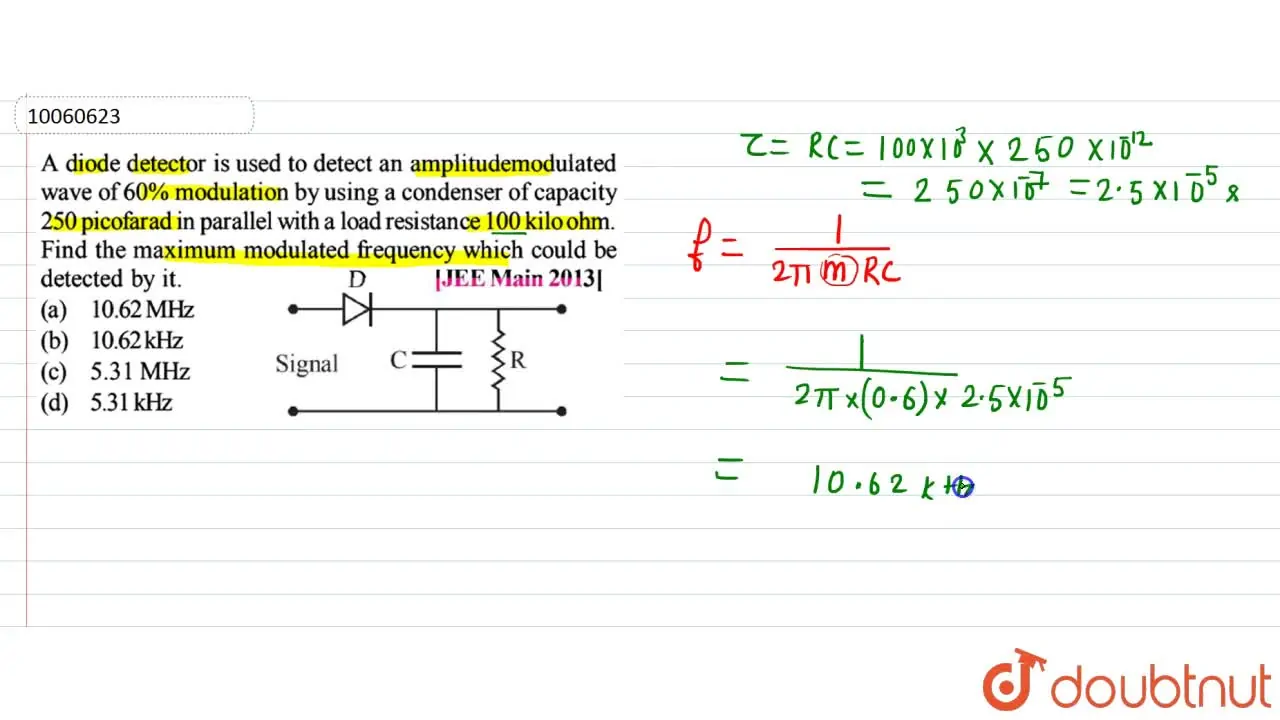 10060623
A diode detector is used to detect an amplitudemodulated
wave of 60% modulation by using a condenser of capacity
250 picofarad in parallel with a load resistance 100 kilo ohm.
Find the maximum modulated frequency which could be
detected by it. [JEE Main 2013]
(a) 10.62 MHz
(b) 10.62 kHz
(c) 5.31 MHz
(d) 5.31 kHz
D
Signal
C
R
τ = RC = 100×10³ × 250 ×10⁻¹²
= 250×10⁻⁷ = 2.5×10⁻⁵ s
f = 1 / 2π m RC
= 1 / 2π×(0.6)× 2.5×10⁻⁵
= 10.62 kHz
doubtnut